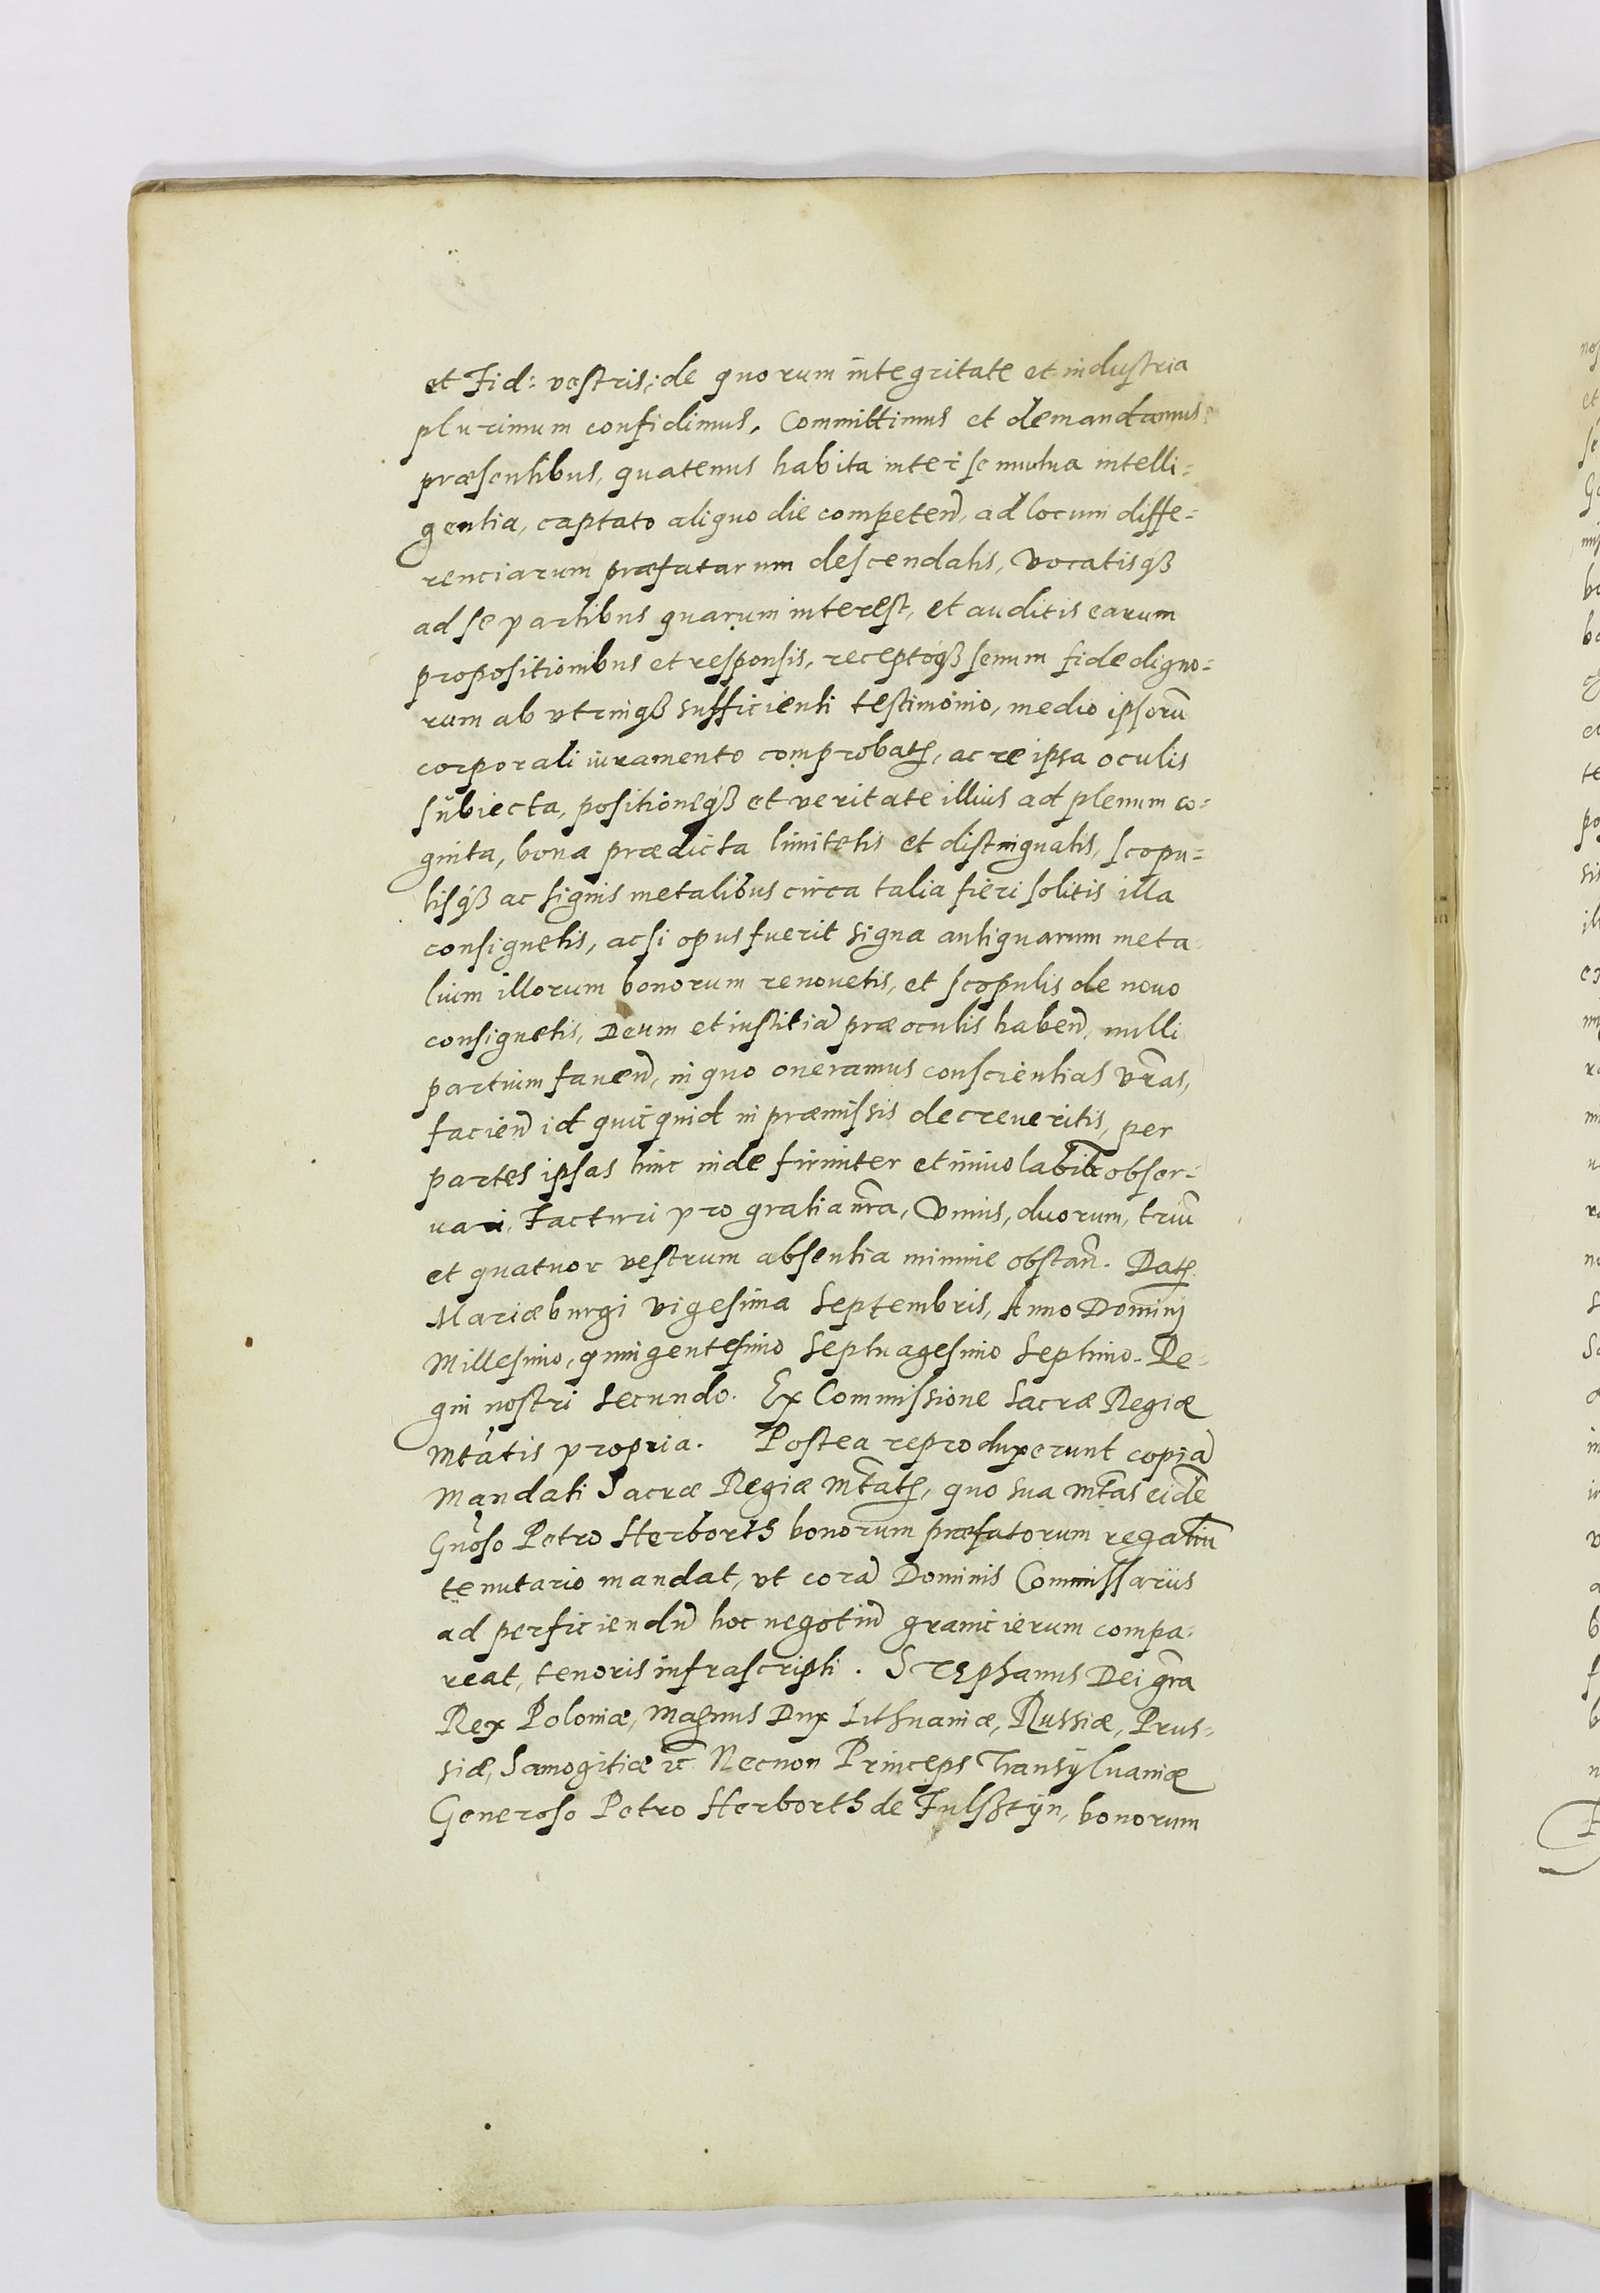 et Fid: vestris, de quorum integritate et industria
plurimum confidimus, Committimus et demandamus
præsentibus, quatenus habita inter se mutua intelli=
gentia, captato aliquo die competen̄, ad locum diffe=
renciarum præfatarum descendatis, vocatisq́ꝫ
ad se partibus quarum interest, et auditis earum
propositionibus et responsis, receptoq́ꝫ senum fide digno=
rum ab vtrinqꝫ sufficienti testimonio, medio ipsorū
corporali iuramento comprobatꝭ, ac re ipsa oculis
subiecta, positioneq́ꝫ et veritate illius ad plenum co=
gnita, bona prædicta limitetis et distinguatis, scopu=
lisq́ꝫ ac signis metalibus circa talia fieri solitis illa
consignetis, ac si opus fuerit signa antiquarum meta
lium illorum bonorum renouetis, et scopulis de nouo
consignetis, Deum et iustitiā præ oculis haben̄, nulli
partium fauen̄, in quo oneramus conscientias vr̄as,
facien̄ id quicquid in præmissis decreueritis, per
partes ipsas hinc inde firmiter et inuiolabilr̄ obser=
uari, Facturi pro gratia nr̄a, Vnius, duorum, triū
et quatuor vestrum absentia minime obstan̄. Datꝭ
Mariæburgi vigesima Septembris, Anno Dominj
Millesimo, quingentesimo Septuagesimo Septimo. Re=
gni nostri Secundo. Ex Commissione Sacræ Regiæ
Mtatis propria. Postea reproduxerunt copiā
Mandati Sacræ Regiæ Mtatꝭ, quo sua Mtas eidē
Gnoso Petro Herborth bonorum præfatorum regaliū
tenutario mandat, vt corā Dominis Commissariis
ad perficiendū hoc negotiū granicierum compa=
reat, tenoris infrascripti. STephanus Dei gr̄a
Rex Poloniæ, Magnus Dux Lithuaniæ, Russiæ, Prus=
siæ, Samogitiæ ꝛc̄ Necnon Princeps Transyluaniæ
Generoso Petro Herborth de Fulsstÿn, bonorum